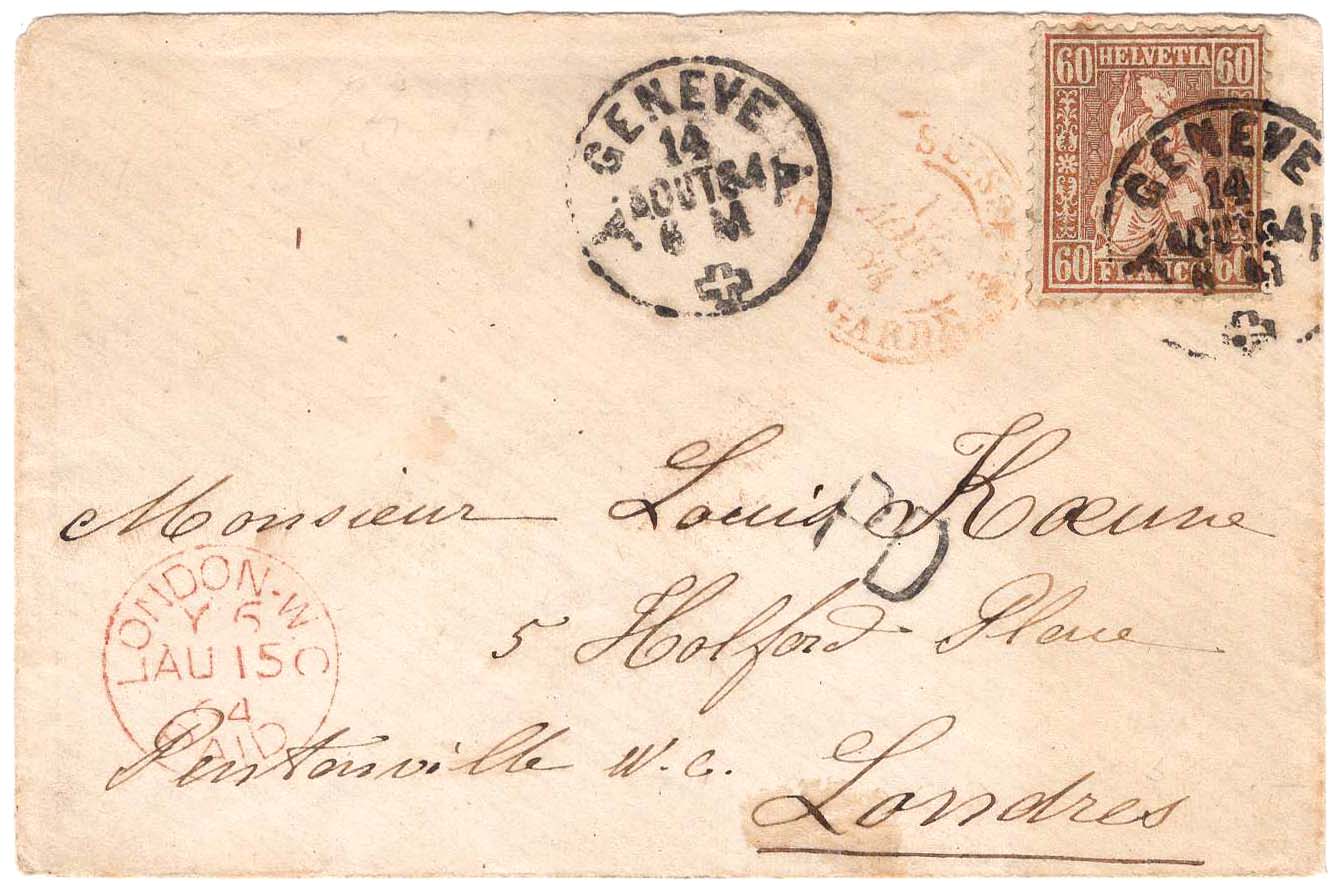 60 HELVETIA 60
60 FRANCO 60
GENEVE
14
AOUT 64
GENEVE
14
AOUT 64
SUISSE
AOUT
64
Monsieur Louis Kœune
PD
5 Holford Place
Pentonville W.C.
Londres
LONDON-W C
Y 5
AU 15
64
PAID